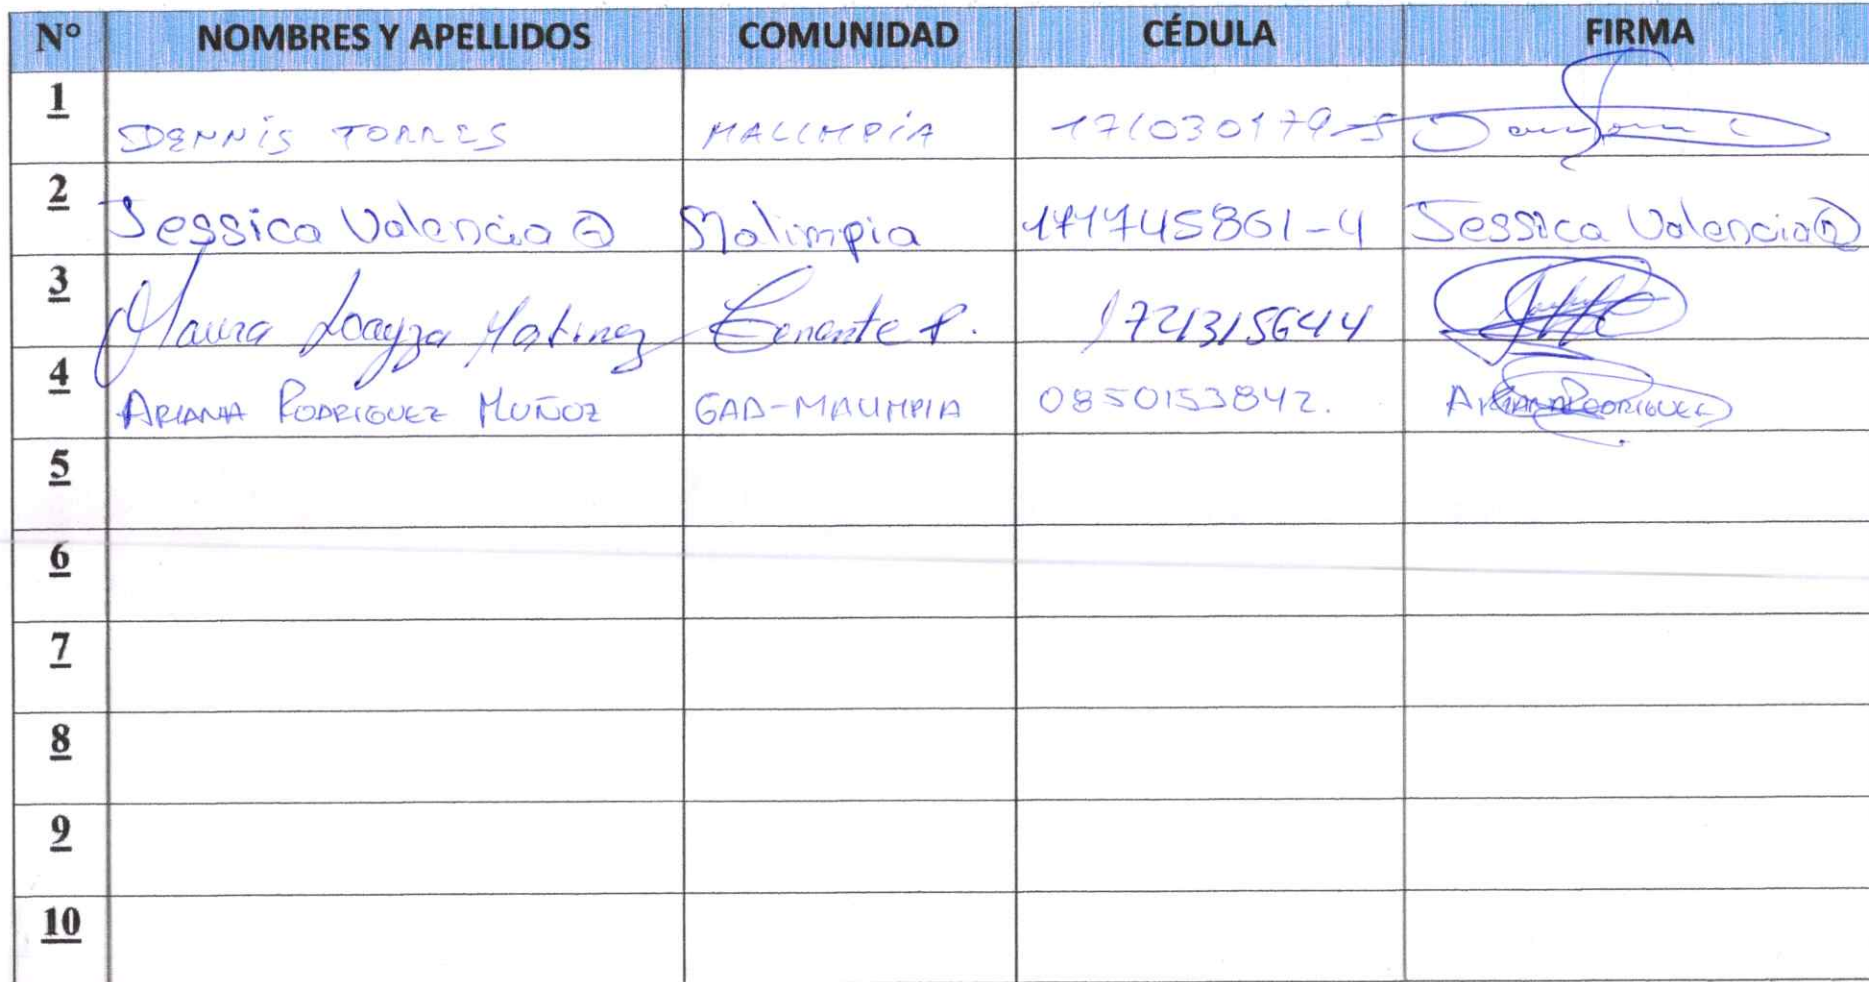 N° NOMBRES Y APELLIDOS COMUNIDAD CÉDULA FIRMA
1 DENNIS TORRES MALIMPÍA 171030179-5
2 Jessica Valencia Malimpia 171745861-4 Jessica Valencia
3 Maura Loayza Matinez Tenente P. 1721315644
4 ARIANA RODRIGUEZ MUÑOZ GAD-MALIMPIA 0850153842. ARIANA RODRIGUEZ
5
6
7
8
9
10